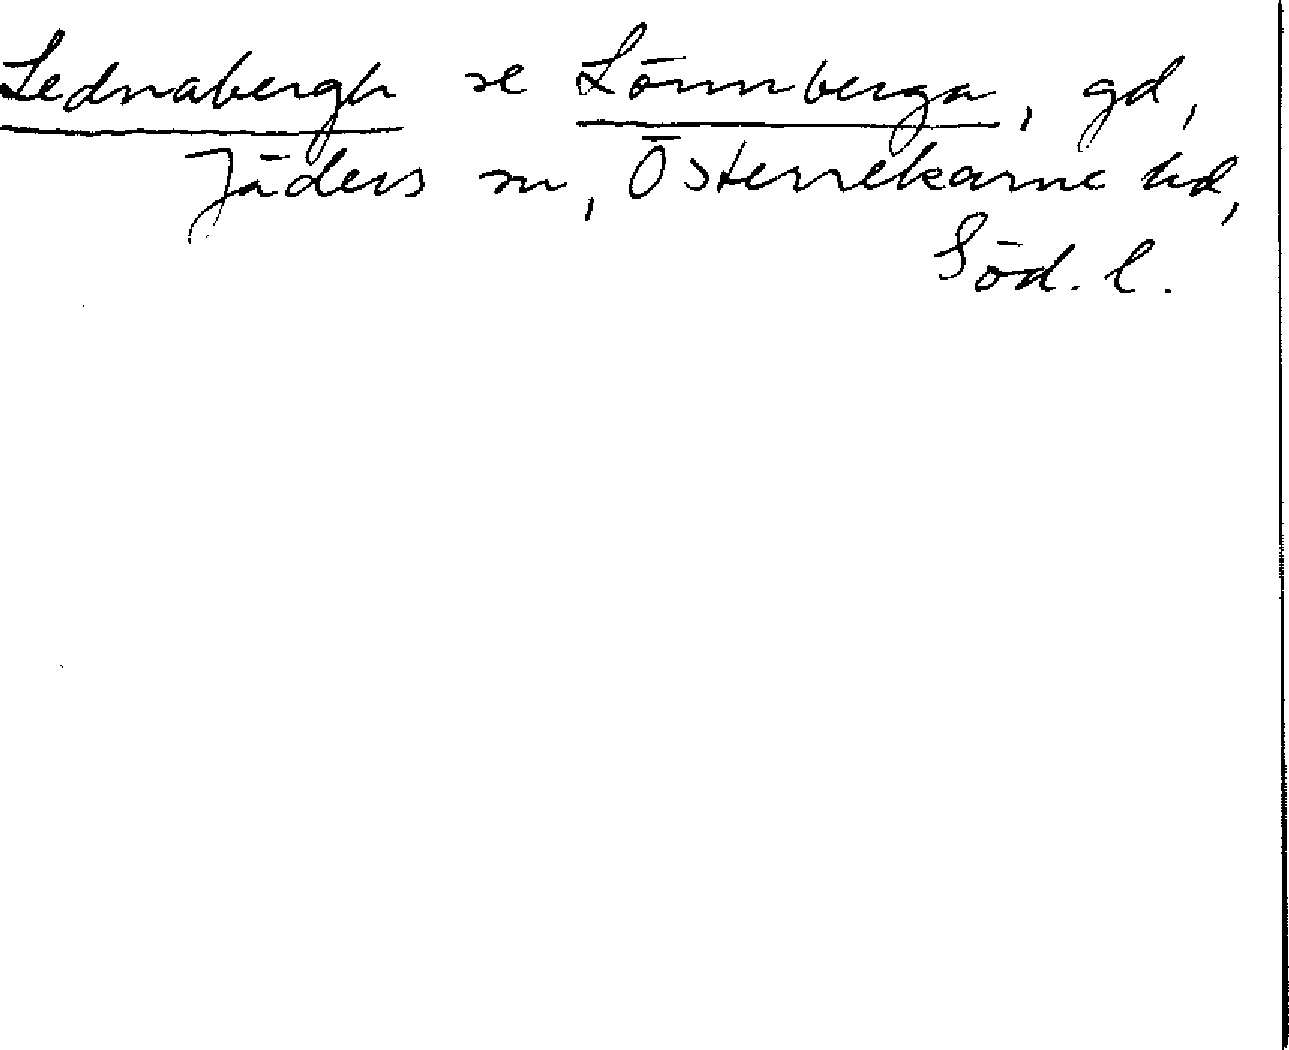 Lednabergh se Lönnberga, gd,
Jäders sn, Österrekarne hd,
Söd. l.